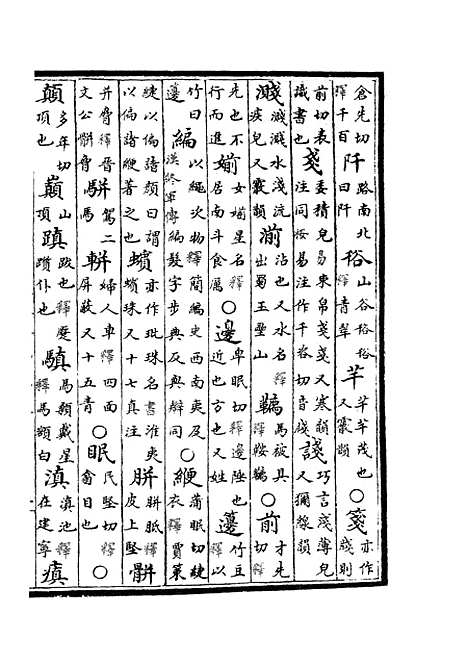 倉先切釋千百阡路南北曰阡谸山谷谸谸釋青翠芊芊芊茂也又霰韻○箋亦作牋則
前切表識書也戔委積皃易束帛戔戔又寒韻注同按易注作千牋切音殘諓巧言淺薄皃又獮綫韻
濺濺濺水淺流疾皃又霰韻湔沾也又水名釋出蜀玉壘山韉馬被具釋鞍韉○前才先切釋
先也不行而進媊女媊星名釋居南斗食厲○邊卑眠切釋邊陲也近也方也又姓籩竹豆釋以
竹曰籩編以繩次物釋簡編史西南夷及漢終軍傳編髮字步典反與辮同○緶蒲眠切緁衣釋賈策
緁以偏諸顏曰謂以偏諸緶著之也蠙亦作玭珠名書淮夷蠙珠又十七真注胼胼胝釋皮上堅骿
并脅釋晉文公骿脅駢駕二馬軿婦人車釋四面屏蔽又十五青○眠民堅切釋翕目也○
顛多年切頂也巔山頂蹎跋也釋蹙躓仆也驥馬額戴星釋馬額白滇滇池釋在建寧瘨